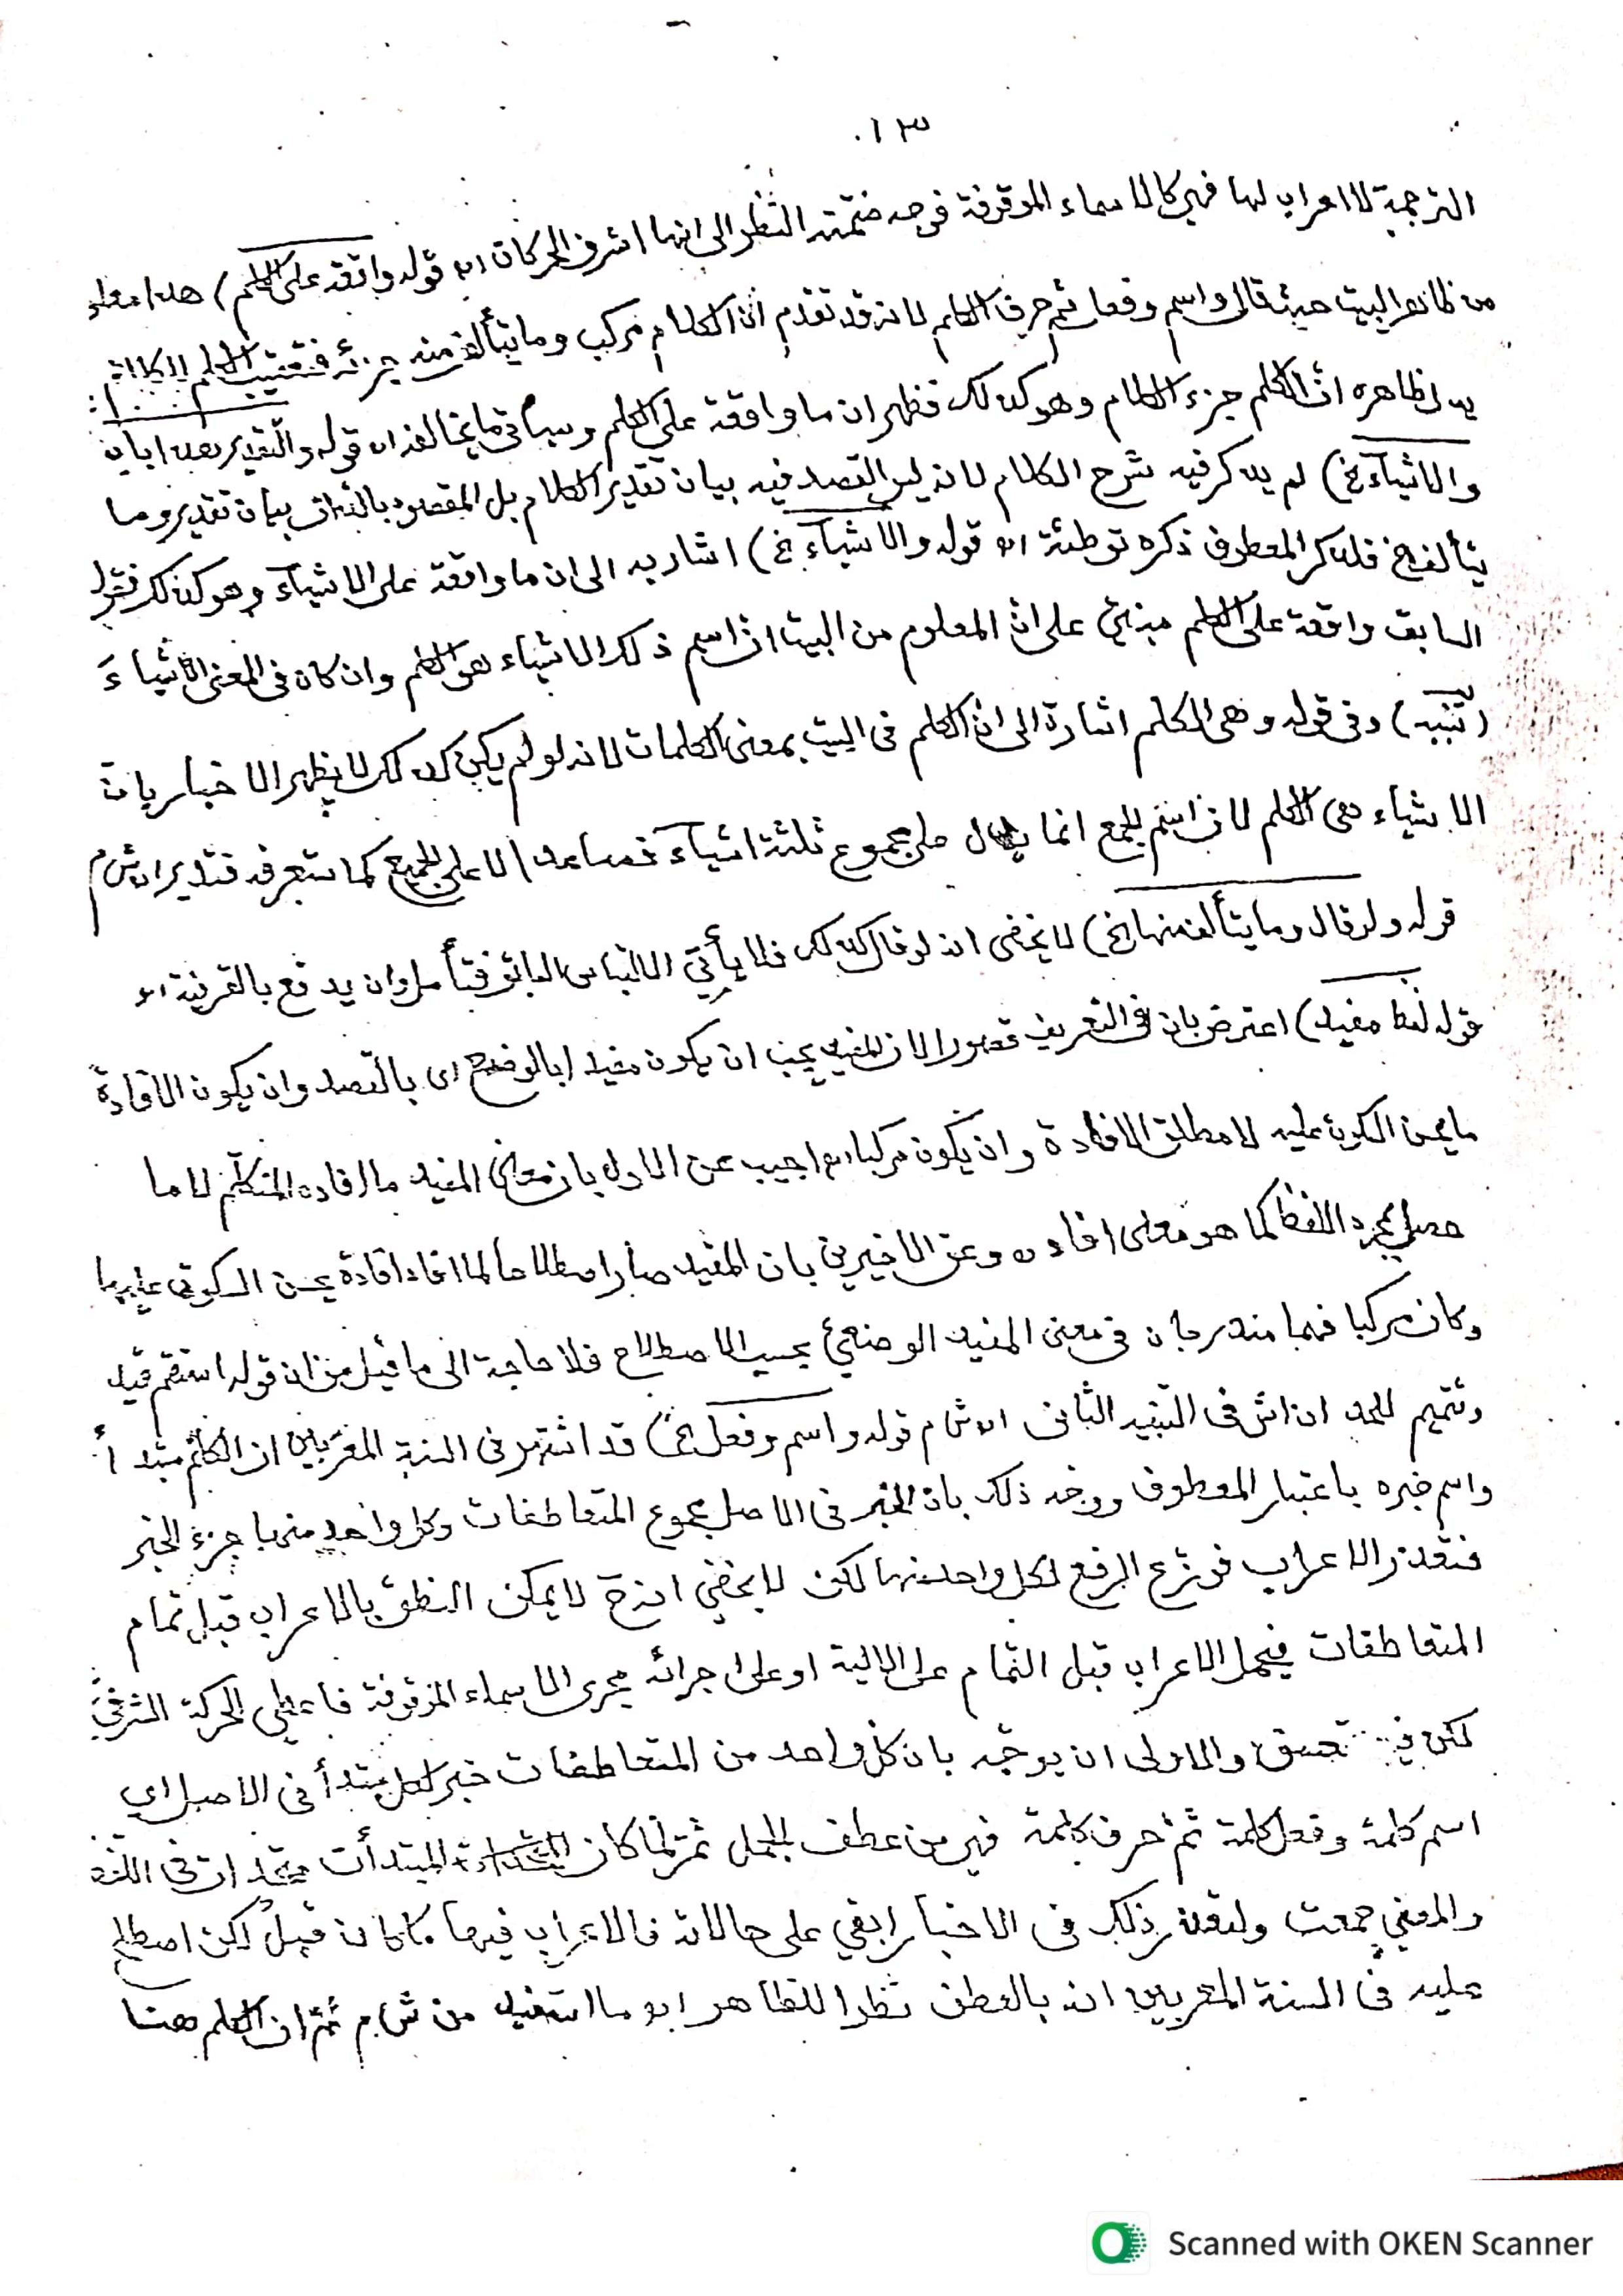 ١٣
الترجمة لا اعراب لها فهي كالاسماء الموقوفة فوجه ضمته النظر الى انها اشرف الحركات اه قوله واقعة على الكلم) هذا معلوم
من ظاهر البيت حيث قال واسم وفعل ثم حرف الكلم لانه قد تقدم ان الكلام مركب وما يتألف منه جزئه فتعقيب الكلم للكلام
يدل ظاهره ان الكلم جزء الكلام وهو كذلك فظهر ان ما واقعة على الكلم وسيأتى ما يخالفه اه قوله والتقدير هذا باب
والاشيآء الخ) لم يذكر فيه شرح الكلام لانه ليس القصد فيه بيان تقدير الكلام بل المقصود بالذات بيان تقدير وما
يتألف الخ فذكر المعطوف ذكره توطئة اه قوله والاشيآء الخ) اشار به الى ان ما واقعة على الاشيآء وهو كذلك فقوله
السابق واقعة على الكلم مبنى على ان المعلوم من البيت ان اسم ذلك الاشياء هى الكلم وان كان فى المعنى الاشياء
(تنبيه) وفى قوله وهى الكلم اشارة الى ان الكلم فى البيت بمعنى الكلمات لانه لو لم يكن كذلك لا يظهر الاخبار بان
الاشياء هى الكلم لان اسم الجمع انما يدل على مجموع ثلثة اشيآء فصاعدا لا على الجميع كما ستعرفه فتدبر اه ش م
قوله ولو قال وما يتألف منها الخ) لا يخفى انه لو قال كذلك فلا يأتي الالتباس السابق فتأمل وان يدفع بالقرينة اه
قوله لفظ مفيد) اعترض بان فى التعريف قصورا لان المفيد يجب ان يكون مفيدا بالوضع اى بالقصد وان يكون الافادة
ما يحسن السكوت عليه لا مطلق الافادة وان يكون مركبا اه واجيب عن الاول بان معنى المفيد ما افاده المتكلم لا ما
حصل بمجرد اللفظ كما هو معنى افاده وعن الاخيرين بان المفيد صار اصطلاحا لما افاد افادة يحسن السكوت عليها
وكان مركبا فهما مندرجان فى معنى المفيد الوضعي بحسب الاصطلاح فلا حاجة الى ما قيل من ان قوله استقم قيد
وتتميم للحد اه اش فى التقييد الثانى اه ش م قوله واسم وفعل الخ) قد اشتهر فى السنة المعربين ان الكلم مبتدأ
واسم خبره باعتبار المعطوف ووجه ذلك بان الخبر فى الاصل مجموع المتعاطفات وكل واحد منها جزء الخبر
فتعذر الاعراب فوزع الرفع لكل واحد منها لكن لا يخفى انه ح لا يمكن النطق بالاعراب قبل تمام
المتعاطفات فيحمل الاعراب قبل التمام على الالية او على اجرائه مجرى الاسماء الموقوفة فاعطى الحركة الشرفى
لكن فيه تعسف والاولى ان يوجه بان كل واحد من المتعاطفات خبر لكل مبتدأ فى الاصل اى
اسم كلمة وفعل كلمة ثم حرف كلمة فهو من عطف الجمل ثم لما كان المبتدأت متحدات فى اللفظ
والمعنى جمعت ولتعذر ذلك فى الاخبار ابقي على حالاته فالاعراب فيها كما كان قبل لكن اصطلح
عليه فى السنة المعربين انه بالعطف نظرا للظاهر اه ما استفيد من ش م ثم ان الكلم هنا
Scanned with OKEN Scanner